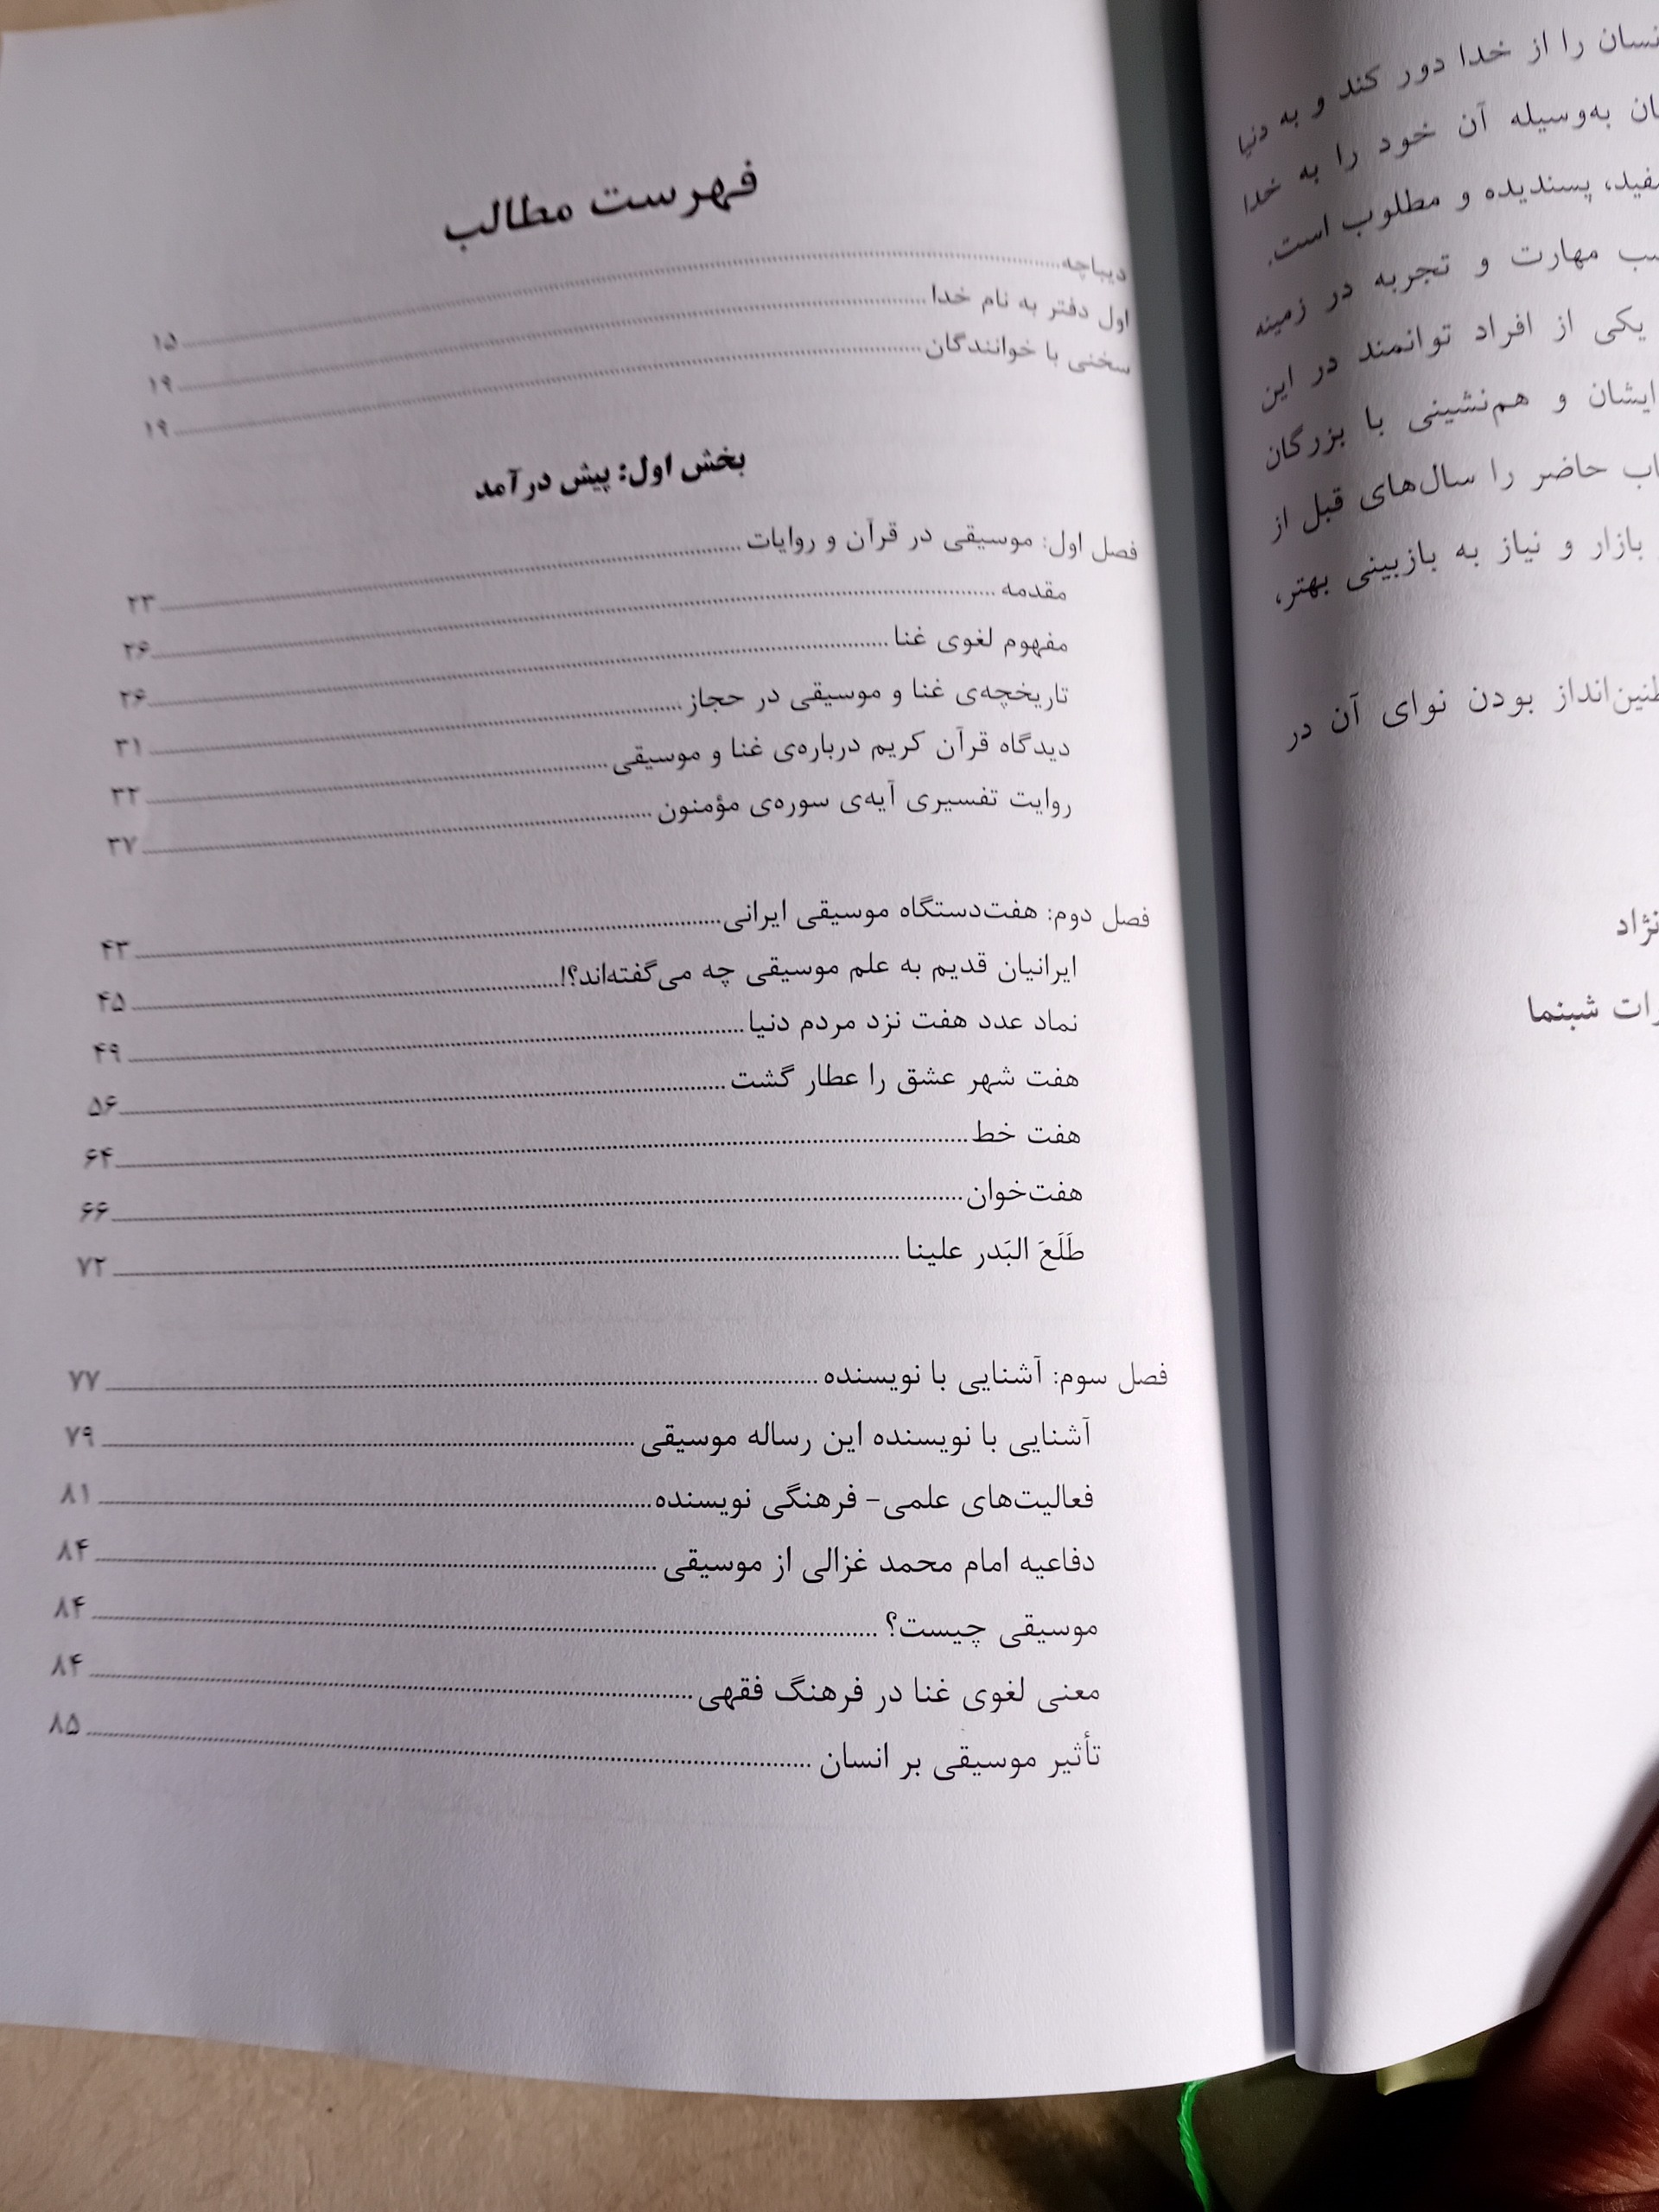 نسان را از خدا دور کند و به دنیا
ان به‌وسیله آن خود را به خدا
فید، پسندیده و مطلوب است.
ب مهارت و تجربه در زمینه
یکی از افراد توانمند در این
ایشان و هم‌نشینی با بزرگان
اب حاضر را سال‌های قبل از
بازار و نیاز به بازبینی بهتر،
طنین‌انداز بودن نوای آن در
نژاد
رات شبنما
فهرست مطالب
دیباچه ........ ۱۵
اول دفتر به نام خدا ........ ۱۹
سخنی با خوانندگان ........ ۱۹
بخش اول: پیش درآمد
فصل اول: موسیقی در قرآن و روایات ........ ۲۳
مقدمه ........ ۲۶
مفهوم لغوی غنا ........ ۲۶
تاریخچه‌ی غنا و موسیقی در حجاز ........ ۳۱
دیدگاه قرآن کریم درباره‌ی غنا و موسیقی ........
روایت تفسیری آیه‌ی سوره‌ی مؤمنون ........ ۳۷
فصل دوم: هفت‌دستگاه موسیقی ایرانی ........ ۴۳
ایرانیان قدیم به علم موسیقی چه می‌گفته‌اند؟! ........ ۴۵
نماد عدد هفت نزد مردم دنیا ........ ۴۹
هفت شهر عشق را عطار گشت ........ ۵۶
هفت خط ........ ۶۴
هفت‌خوان ........ ۶۶
طَلَعَ البَدر علینا ........ ۷۲
فصل سوم: آشنایی با نویسنده ........ ۷۷
آشنایی با نویسنده این رساله موسیقی ........ ۷۹
فعالیت‌های علمی- فرهنگی نویسنده ........ ۸۱
دفاعیه امام محمد غزالی از موسیقی ........ ۸۴
موسیقی چیست؟ ........ ۸۴
معنی لغوی غنا در فرهنگ فقهی ........ ۸۴
تأثیر موسیقی بر انسان ........ ۸۵